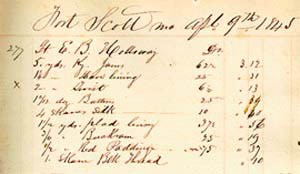 Fort Scott Mo Apl. 9th 1845
277 Lt E. B. Holloway Dr.
5 yds Ky. Jeans 62½ 3.12
1½ " lining 25
x 2 " Drill 6½ 13
1½ dz Buttons 25
4 Skeins Silk 10
1½ yds plad lining 37½ 56
½ " Buckram 19
½ " Red Padding 75 37
1 Skein Blk Thread